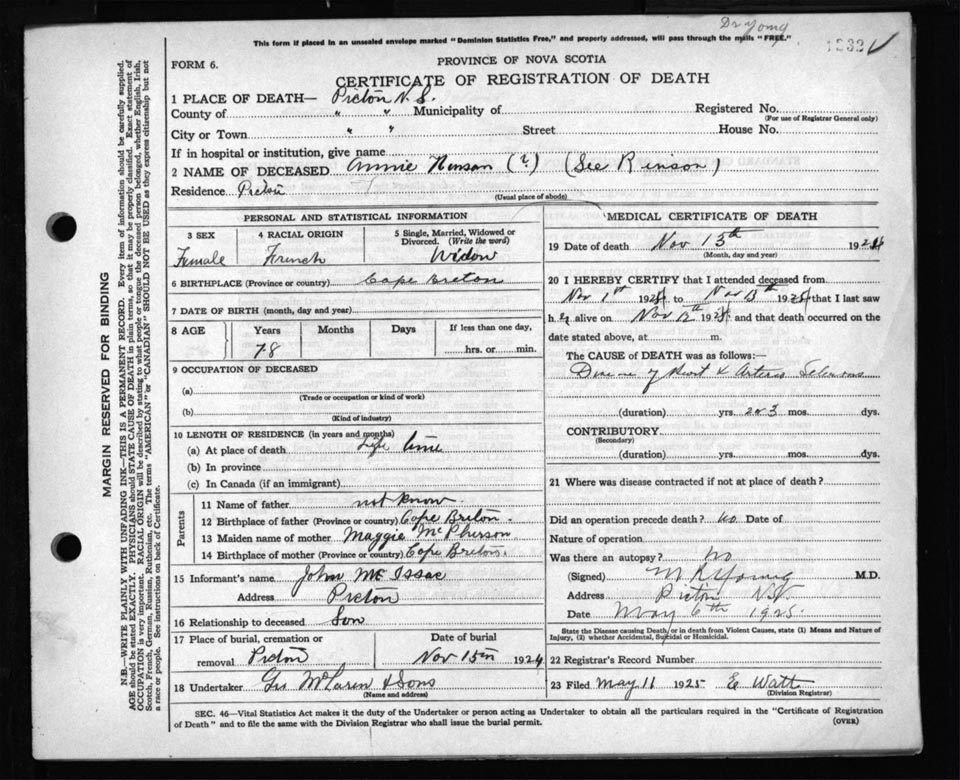 Dr Young
This form if placed in an unsealed envelope marked "Dominion Statistics Free," and properly addressed, will pass through the mails "FREE."
FORM 6.
PROVINCE OF NOVA SCOTIA
CERTIFICATE OF REGISTRATION OF DEATH
1 PLACE OF DEATH— Pictou N.S.
County of " " Municipality of
Registered No.
(For use of Registrar General only)
City or Town " " Street House No.
If in hospital or institution, give name
2 NAME OF DECEASED Annie (?) (See Rinson)
Residence Pictou
(Usual place of abode)
PERSONAL AND STATISTICAL INFORMATION
3 SEX
Female
4 RACIAL ORIGIN
French
5 Single, Married, Widowed or Divorced. (Write the word)
Widow
6 BIRTHPLACE (Province or country) Cape Breton
7 DATE OF BIRTH (month, day and year)
8 AGE Years Months Days If less than one day,
78 hrs. or min.
9 OCCUPATION OF DECEASED
(a)
(Trade or occupation or kind of work)
(b)
(Kind of industry)
10 LENGTH OF RESIDENCE (in years and months)
(a) At place of death Life time
(b) In province
(c) In Canada (if an immigrant)
Parents
11 Name of father not know
12 Birthplace of father (Province or country) Cape Breton.
13 Maiden name of mother Maggie McPherson
14 Birthplace of mother (Province or country) Cape Breton.
15 Informant's name John Mc Issac
Address Pictou
16 Relationship to deceased Son
17 Place of burial, cremation or removal Pictou
Date of burial
Nov 15th 1924
18 Undertaker Geo McLaren & Sons
(Name and address)
MEDICAL CERTIFICATE OF DEATH
19 Date of death Nov 13th 1924
(Month, day and year)
20 I HEREBY CERTIFY that I attended deceased from
Nov 1st 1924 to Nov 13th 1924 that I last saw
h er alive on Nov 12th 1924 and that death occurred on the
date stated above, at m.
The CAUSE OF DEATH was as follows:—
Disease of Heart & Arterio Sclerosis
(duration) yrs. 2 or 3 mos. dys.
CONTRIBUTORY
(Secondary)
(duration) yrs. mos. dys.
21 Where was disease contracted if not at place of death?
Did an operation precede death? No Date of
Nature of operation
Was there an autopsy? No
(Signed) M R Young M.D.
Address Pictou N.S.
Date May 6th 1925.
State the Disease causing Death, or in death from Violent Causes, state (1) Means and Nature of Injury, (2) whether Accidental, Suicidal or Homicidal.
22 Registrar's Record Number
23 Filed May 11 1925 E Watt
(Division Registrar)
SEC. 46—Vital Statistics Act makes it the duty of the Undertaker or person acting as Undertaker to obtain all the particulars required in the "Certificate of Registration
of Death" and to file the same with the Division Registrar who shall issue the burial permit.
(OVER)
MARGIN RESERVED FOR BINDING
N.B.—WRITE PLAINLY WITH UNFADING INK—THIS IS A PERMANENT RECORD. Every item of information should be carefully supplied.
AGE should be stated EXACTLY. PHYSICIANS should STATE CAUSE OF DEATH in plain terms, so that it may be properly classified. Exact statement of
OCCUPATION is very important. RACIAL ORIGIN will be described by stating to what people or tongue the deceased person belonged, whether English, Irish,
Scotch, French, German, Russian, Ruthenian, etc. The terms "AMERICAN" or "CANADIAN" SHOULD NOT BE USED as they express citizenship but not
a race or people. See instructions on back of Certificate.